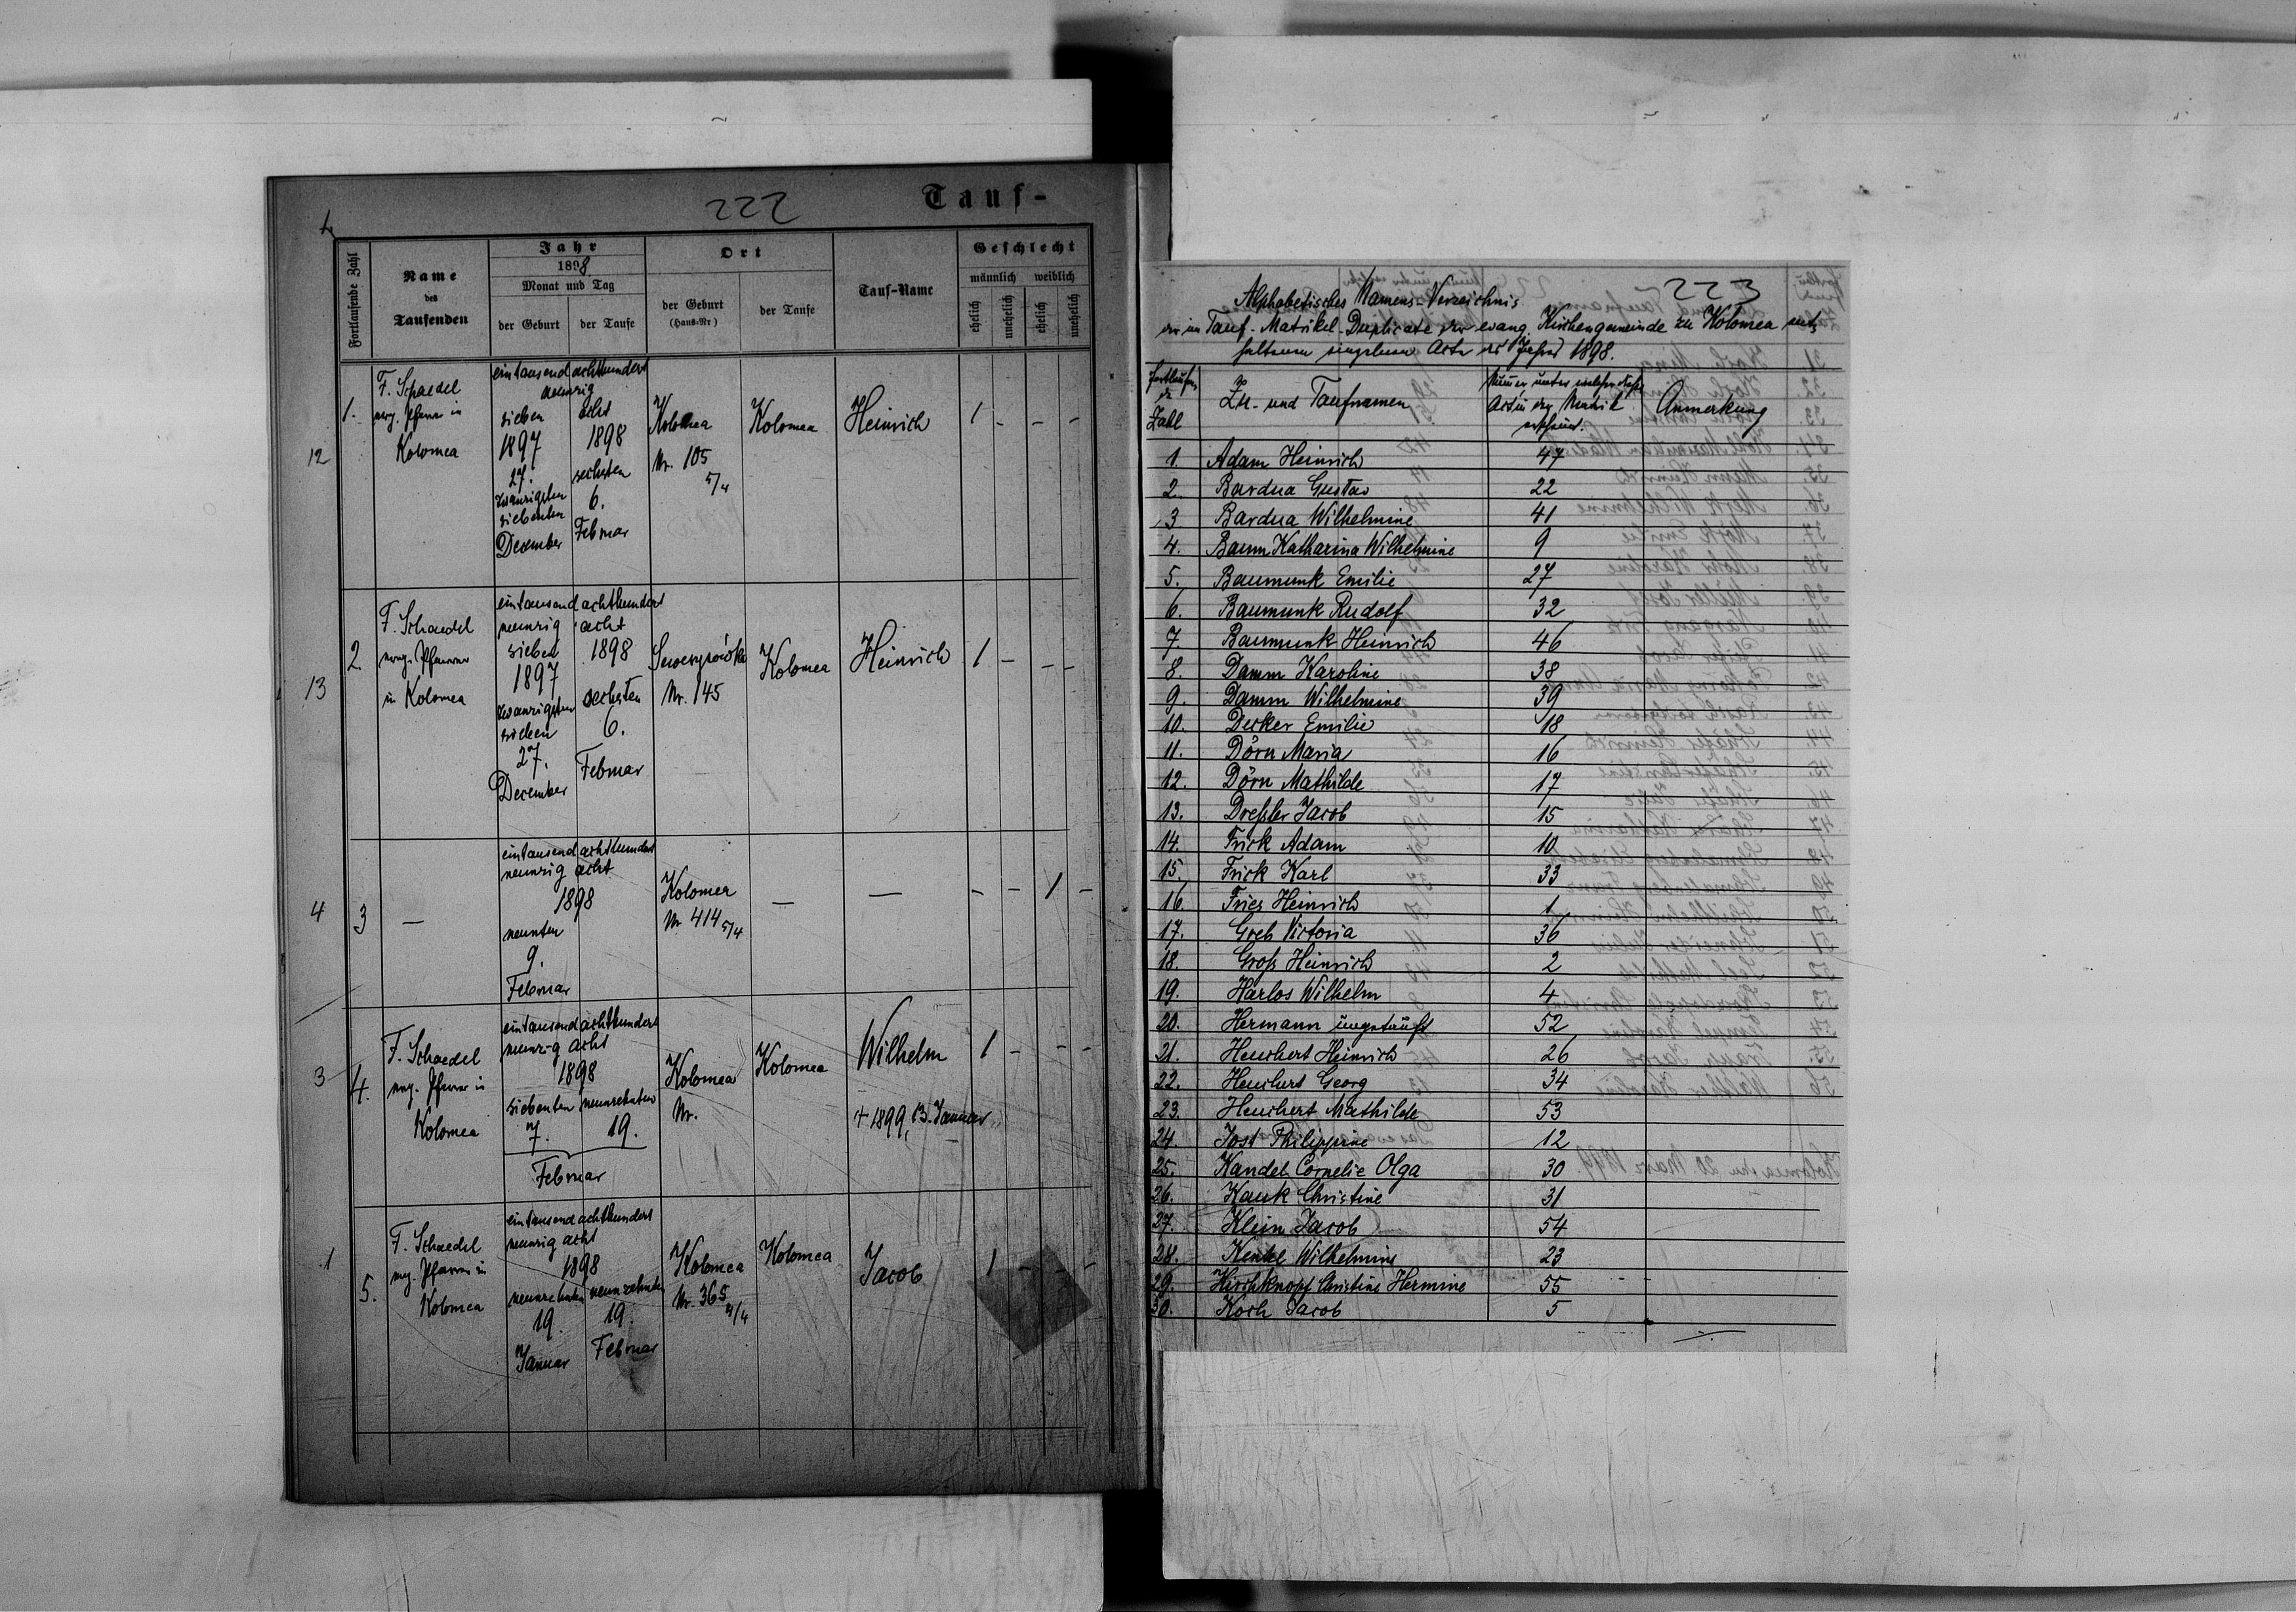 222
Tauf-
1.
Fortlaufende Zahl
Name
des
Taufenden
Jahr
1898
Monat und Tag
der Geburt
der Taufe
Ort
der Geburt
(Haus-Nr)
der Taufe
Tauf-Name
Geschlecht
männlich
weiblich
ehelich
unehelich
ehelich
unehelich
12
1.
F. Schaedel
evg. Pfarrer in
Kolomea
eintausend achthundert
neunzig
sieben acht
1897 1898
27. sechsten
zwanzigsten 6.
siebenten
December Februar
Kolomea
Nr. 105
5/4
Kolomea
Heinrich
1 - - -
13
2.
F. Schaedel
evg. Pfarrer
in Kolomea
eintausend achthundert
neunzig acht
sieben 1898
1897
zwanzigsten sechsten
sieben 6.
27.
December Februar
Nr. 145
Kolomea
Heinrich
1 - - -
4
3
—
eintausend achthundert
neunzig acht
1898
neunten
9.
Februar
Kolomea
Nr 414 5/4
—
—
- - 1 -
3
4.
F. Schaedel
evg. Pfarrer in
Kolomea
eintausend achthundert
neunzig acht
1898
siebenten neunzehnten
7. 19.
Februar
Kolomea
Nr.
Kolomea
Wilhelm
+ 1899, 13. Januar
1 - - -
1
5.
F. Schaedel
evg. Pfarrer in
Kolomea
eintausend achthundert
neunzig acht
1898
neunzehnten neunzehnten
19. 19.
Januar Februar
Kolomea
Nr. 365
4/4
Kolomea
Jacob
1 - - -
223
Alphabetisches Namens-Verzeichnis
der im Tauf-Matrikel-Duplicate der evang. Kirchengemeinde zu Kolomea ent-
haltenen Acte des Jahres 1898.
Fortlaufende
Zahl
Zu- und Taufnamen
Numer unter welcher dieser
Act in der Matrik
erscheint.
Anmerkung
1. Adam Heinrich 47
2. Bardua Gustav 22
3 Bardua Wilhelmine 41
4. Baum Katharina Wilhelmine 9
5. Baumunk Emilie 27
6. Baumunk Rudolf 32
7. Baumunk Heinrich 46
8. Damm Karoline 38
9. Damm Wilhelmine 39
10. Decker Emilie 18
11. Dörn Maria 16
12. Dörn Mathilde 17
13. Dreßler Jacob 15
14. Frick Adam 10
15. Frick Karl 33
16. Fries Heinrich 1
17. Greb Victoria 36
18. Groß Heinrich 2
19. Harlos Wilhelm 4
20. Hermann ungetauft 52
21. Heuchert Heinrich 26
22. Heuchert Georg 34
23. Heuchert Mathilde 53
24. Jost Philippine 12
25. Kandel Cornelie Olga 30
26. Kauk Christine 31
27. Klein Jacob 54
28. Kenkel Wilhelmine 23
29. Hirschknopf Christine Hermine 55
30. Koch Jacob 5